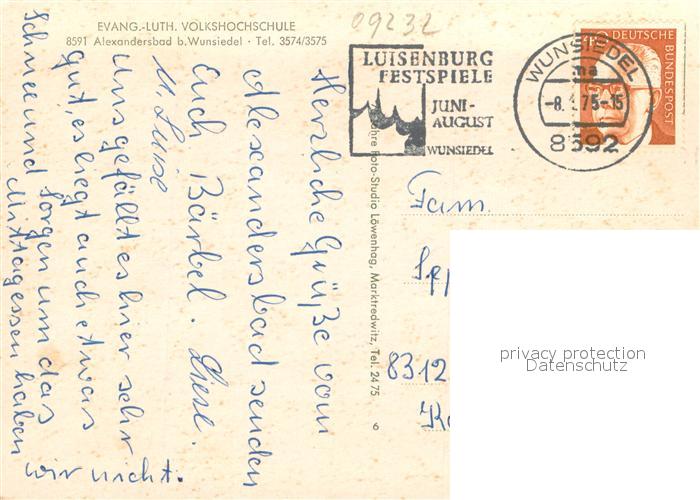 EVANG.-LUTH. VOLKSHOCHSCHULE
8591 Alexandersbad b.Wunsiedel · Tel. 3574/3575
09232
LUISENBURG
FESTSPIELE
JUNI-
AUGUST
WUNSIEDEL
WUNSIEDEL
-8. 75-15
8592
DEUTSCHE BUNDESPOST
Herzliche Grüße vom
Alexandersbad senden
Euch Bärbel. Liesl.
u. Luise
Uns gefällt es hier sehr
gut, es liegt auch etwas
Schnee und Sorgen um das
Mittagessen haben
wir nicht.
Foto-Studio Löwenhag, Marktredwitz, Tel. 2475
6
Fam.
8312
privacy protection
Datenschutz